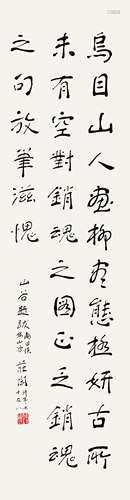 烏目山人畫柳尽態極妍古所
未有空對銷魂之國正乏銷魂
之句放筆滋愧
山谷題跋
莊閑